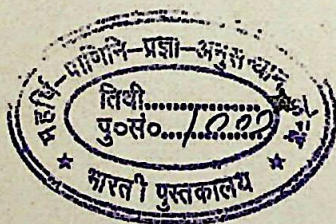 महर्षि-पाणिनि-प्रज्ञा-अनुसन्धान
तिथी..................
पु०सं०..............
★ भारती पुस्तकालय ★